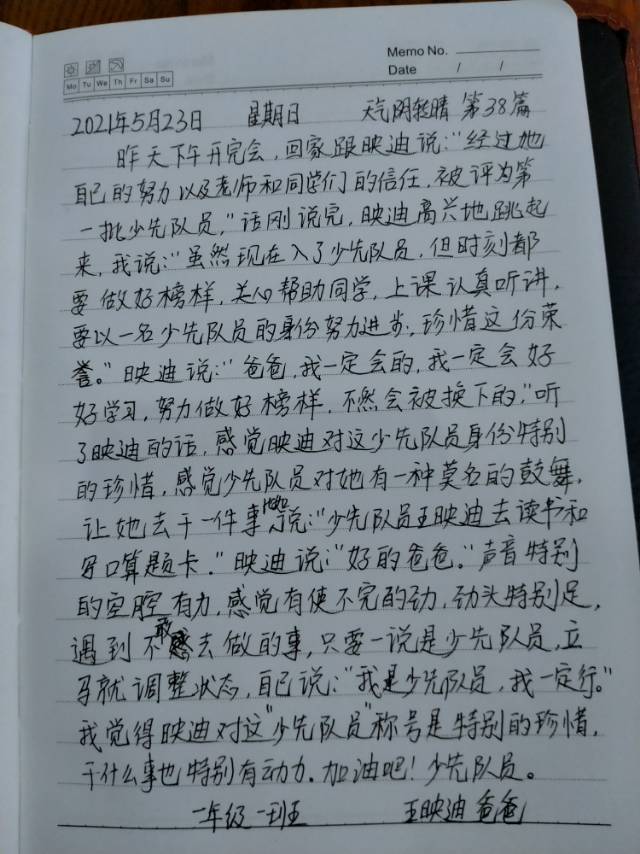 Memo No.
Mo Tu We Th Fr Sa Su
Date / /
2021年5月23日 星期日 天气阴转晴 第38篇
昨天下午开完会,回家跟映迪说:“经过她
自己的努力以及老师和同学们的信任,被评为第
一批少先队员,”话刚说完,映迪高兴地跳起
来,我说:“虽然现在入了少先队员,但时刻都
要做好榜样,关心帮助同学,上课认真听讲,
要以一名少先队员的身份努力进步,珍惜这份荣
誉。”映迪说:“爸爸,我一定会的,我一定会好
好学习,努力做好榜样,不然会被换下的,”听
了映迪的话,感觉映迪对这少先队员身份特别
的珍惜,感觉少先队员对她有一种莫名的鼓舞,
让她去干一件事说:“少先队员王映迪去读书和
写口算题卡.”映迪说:“好的爸爸。”声音特别
的空腔有力,感觉有使不完的劲,劲头特别足,
遇到不敢去做的事,只要一说是少先队员,立
马就调整状态,自己说:“我是少先队员,我一定行。”
我觉得映迪对这“少先队员”称号是特别的珍惜,
干什么事也特别有动力.加油吧!少先队员。
一年级一班 王映迪爸爸